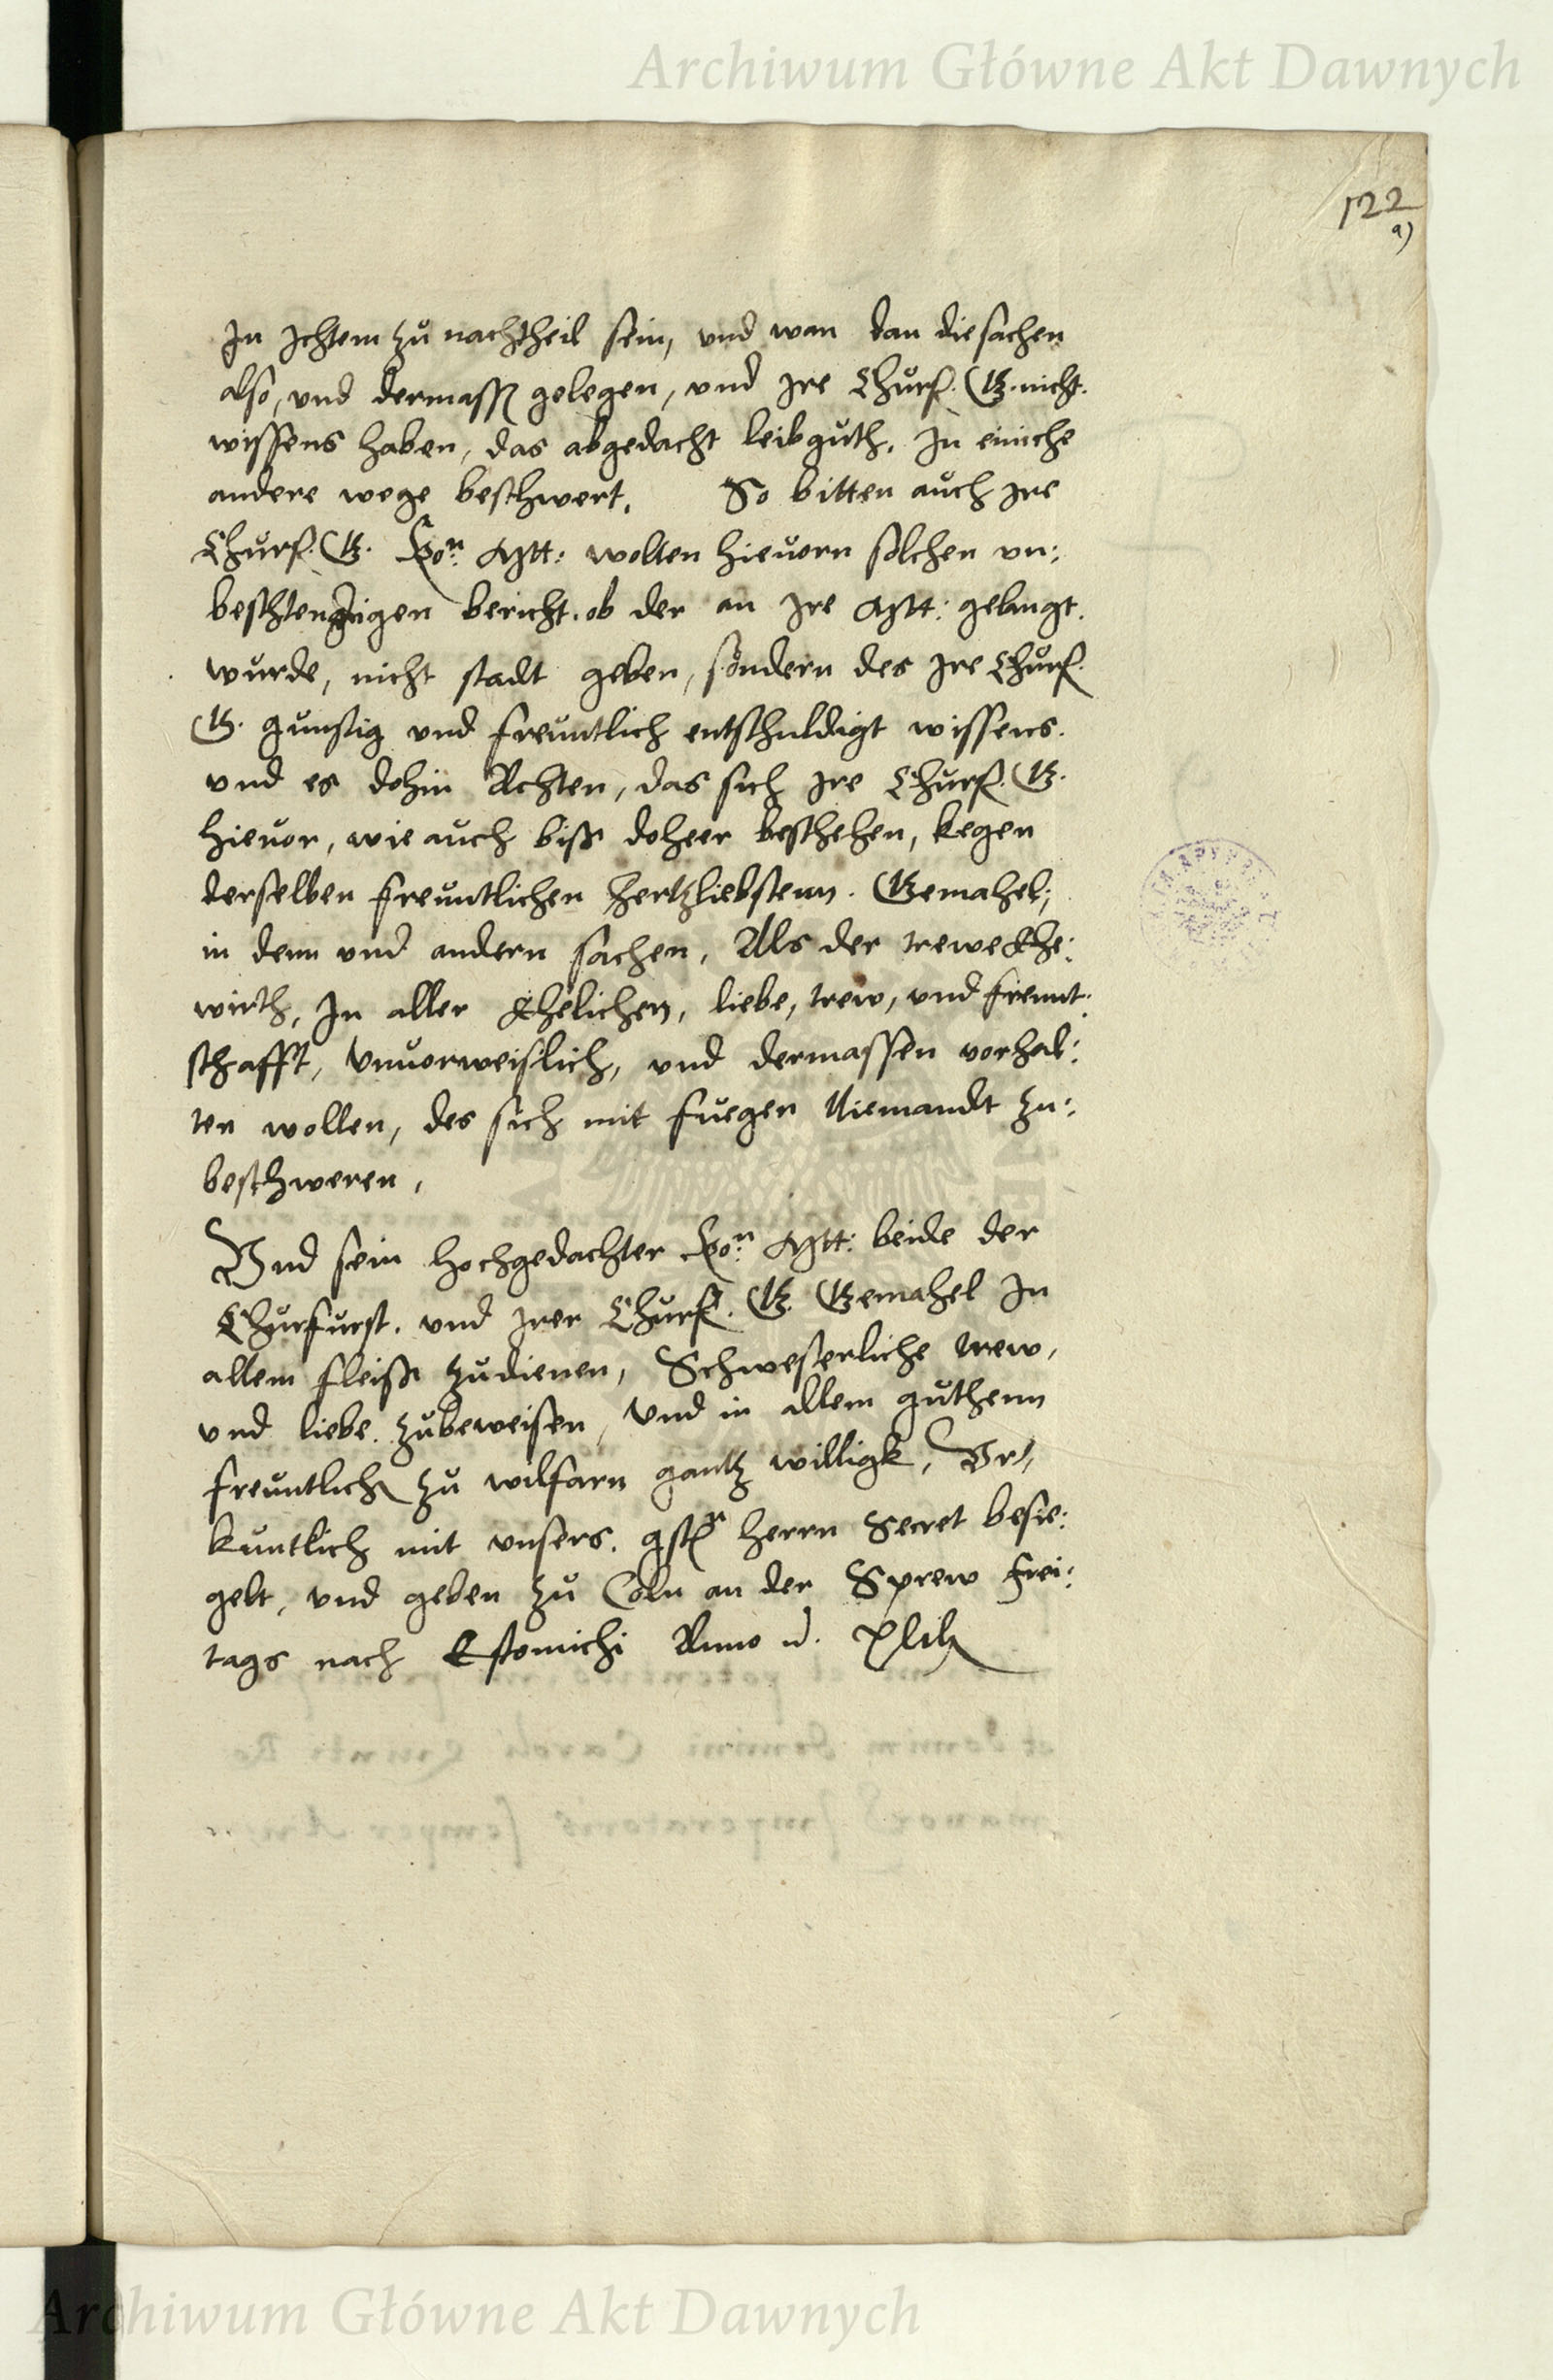 Archiwum Główne Akt Dawnych
122
a)
In Ichtem zu nachtheil sein, vnd wan dan die sachen
also, vnd dermass gelegen, vnd Ire Churf. G. nicht.
wissens haben, das abgedacht leibguth, In einiche
andere wege beschwert. So bitten auch Ire
Churf. G. Kon: Mtt: wolten hieuorn solchen vn:
bestendigen bericht. ob der an Ire Mtt: gelangt.
wurde, nicht stadt geben, sondern des Ire Churf.
G. gunstig vnd freuntlich entschuldigt wissens.
vnd es dohin Achten, das sich Ire Churf. G.
hieuor, wie auch biss doheer beschehen, kegen
derselben freuntlichen hertzliebstenn. Gemahel,
in denn vnd andern sachen, Als der trewe Ehe:
wirth, In aller Ehelichen, liebe, trew, vnd freunt:
schafft, Vnuorweislich, vnd dermassen vorhal:
ten wollen, des sich mit fuegen Niemandt zu:
beschweren,
Vnd sein hochgedachter Kon: Mtt: beide der
Churfurst. vnd Irer Churf. G. Gemahel In
allem fleiss zudienen, Schwesterliche trew,
vnd liebe. zubeweisen, Vnd in allem guthenn
freuntlich zu wilfarn gantz willigk, Vr,
kuntlich mit vnsers. gst herrn Secret besie:
gelt, vnd geben zu Coln an der Sprew frei:
tags nach Estomichi Anno d.
Archiwum Główne Akt Dawnych